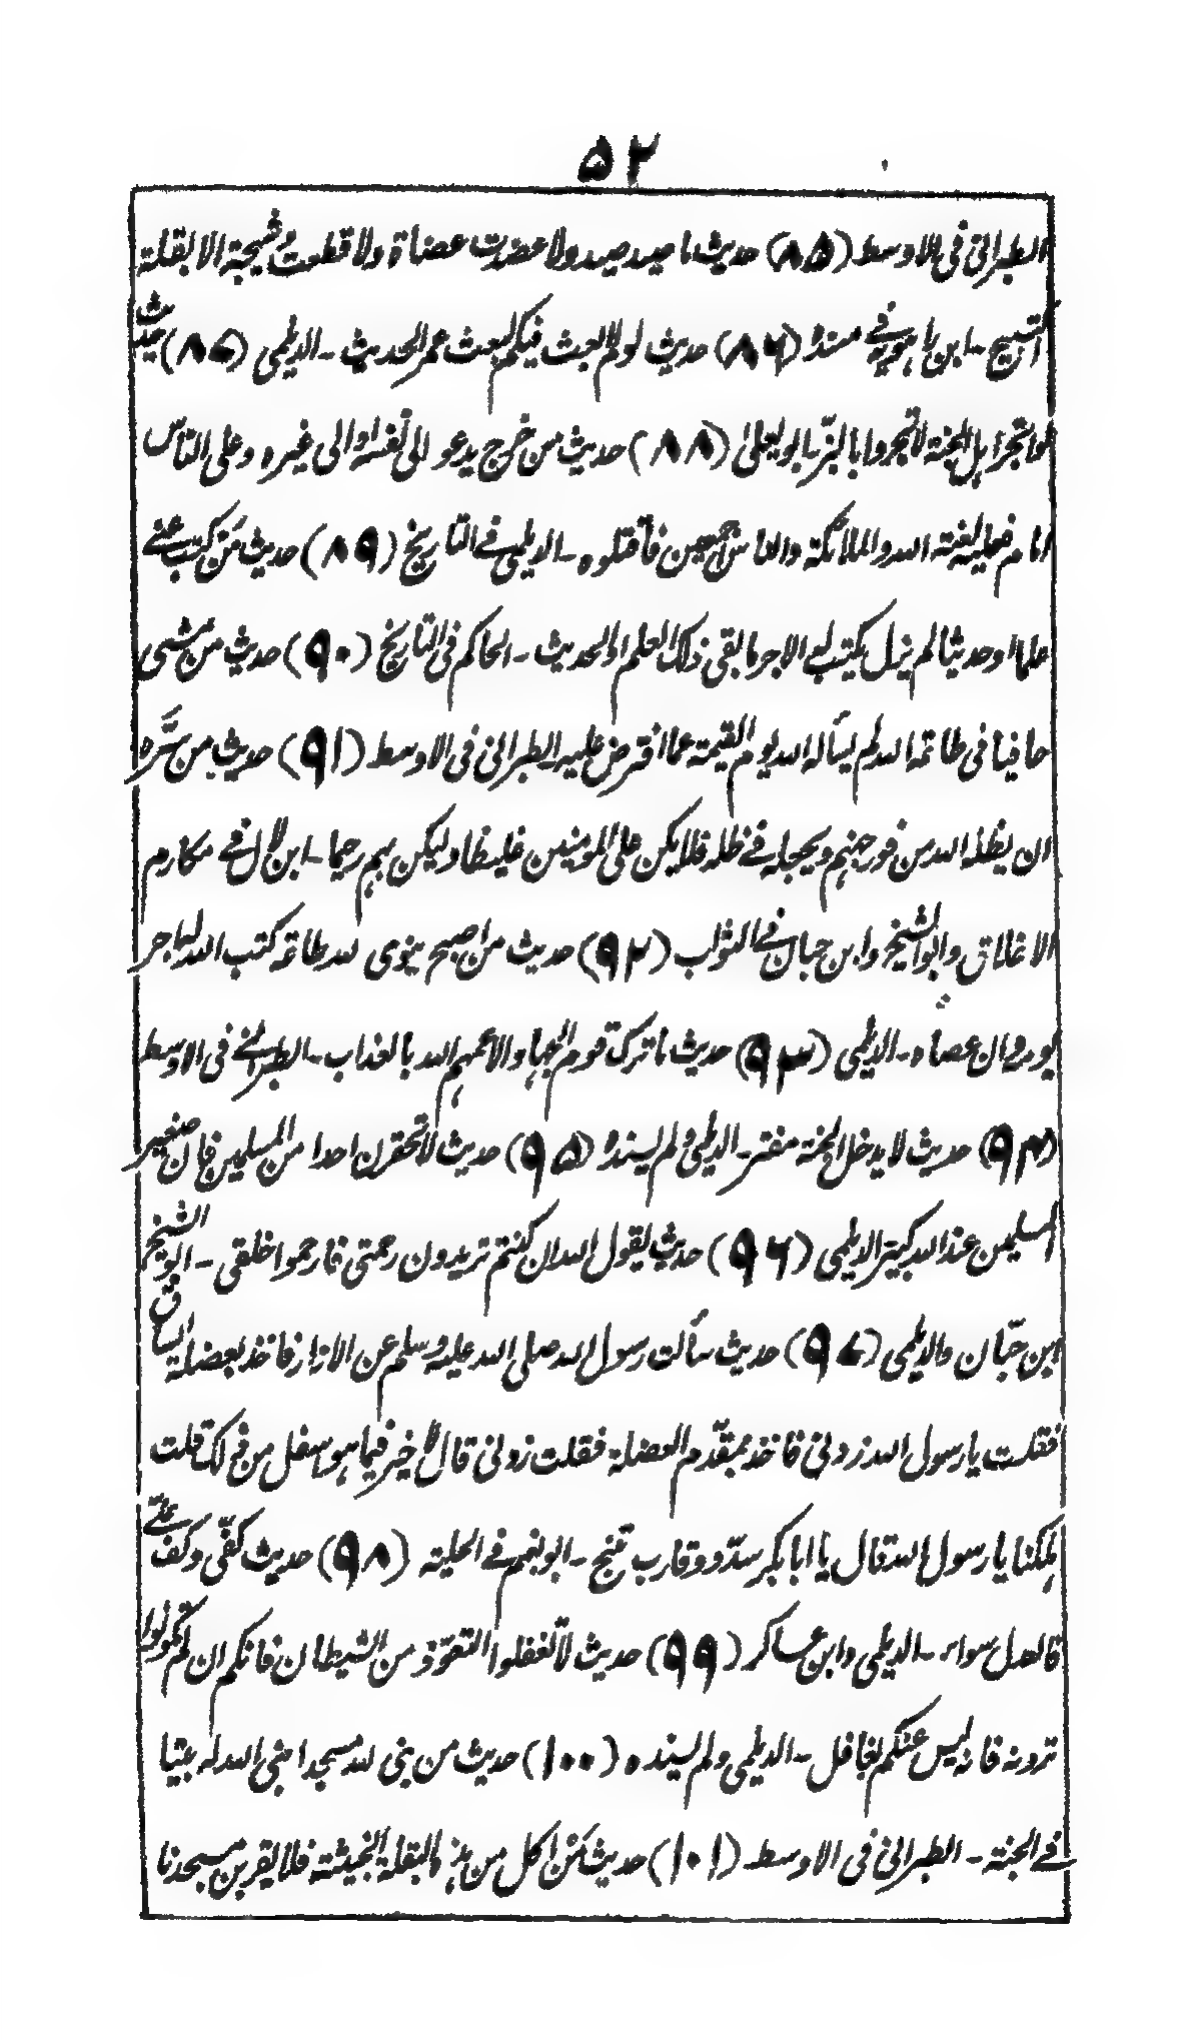 ۵۲
الطبرانی فی الاوسط (۸۵) حدیث ما صید صید ولا عضدت عضاة ولا قطعت وشیجة الا بقلة
التسبیح - ابن راہویہ فی مسندہ (۸۶) حدیث لو لم ابعث فیکم لبعث عمر الحدیث - الدیلمی (۸۷) حدیث
لو اتجر اہل الجنة لاتجروا بالبز ابو یعلیٰ (۸۸) حدیث من خرج یدعو الی نفسہ او الی غیرہ وعلی الناس
امام فعلیہ لعنة اللہ والملائکة والناس اجمعین فاقتلوہ - الدیلمی فی التاریخ (۸۹) حدیث من کتب عنی
علما او حدیثا لم یزل یکتب لہ الاجر ما بقی ذلک العلم او الحدیث - الحاکم فی التاریخ (۹۰) حدیث من مشی
حافیا فی طاعة اللہ لم یسألہ اللہ یوم القیمة عما افترض علیہ الطبرانی فی الاوسط (۹۱) حدیث من سرّہ
ان یظلہ اللہ من فور جہنم ویجعلہ فی ظلہ فلا یکن علی المؤمنین غلیظا ولیکن بہم رحیما - ابن لال فی مکارم
الاخلاق وابو الشیخ وابن حبان فی الثواب (۹۲) حدیث من اصبح ینوی للہ طاعة کتب اللہ لہ اجر
یومہ وان عصاہ - الدیلمی (۹۳) حدیث ما ترک قوم الجہاد الا عمہم اللہ بالعذاب - الطبرانی فی الاوسط
(۹۴) حدیث لا یدخل الجنة مفتر - الدیلمی ولم یسندہ (۹۵) حدیث لا تحقرن احدا من المسلمین فان صغیر
المسلمین عند اللہ کبیر الدیلمی (۹۶) حدیث یقول اللہ ان کنتم تریدون رحمتی فارحموا خلقی - ابو الشیخ
ابن حبّان والدیلمی (۹۷) حدیث سألت رسول اللہ صلی اللہ علیہ وسلم عن الازار فاخذ بعضلة الساق
فقلت یا رسول اللہ زدنی فاخذ بمقدّم العضلة فقلت زدنی قال لا خیر فیما ہو اسفل من ذلک قلت
ہلکنا یا رسول اللہ قال یا ابا بکر سدّد وقارب تنج - ابو نعیم فی الحلیة (۹۸) حدیث کفّی وکف علیّ
فی العدل سواء - الدیلمی وابن عساکر (۹۹) حدیث لا تغفلوا التعوّذ من الشیطان فانکم ان لم تکونوا
ترونہ فانہ لیس عنکم بغافل - الدیلمی ولم یسندہ (۱۰۰) حدیث من بنی للہ مسجدا بنی اللہ لہ بیتا
فی الجنة - الطبرانی فی الاوسط (۱۰۱) حدیث من اکل من ہذہ البقلة الخبیثة فلا یقربن مسجدنا